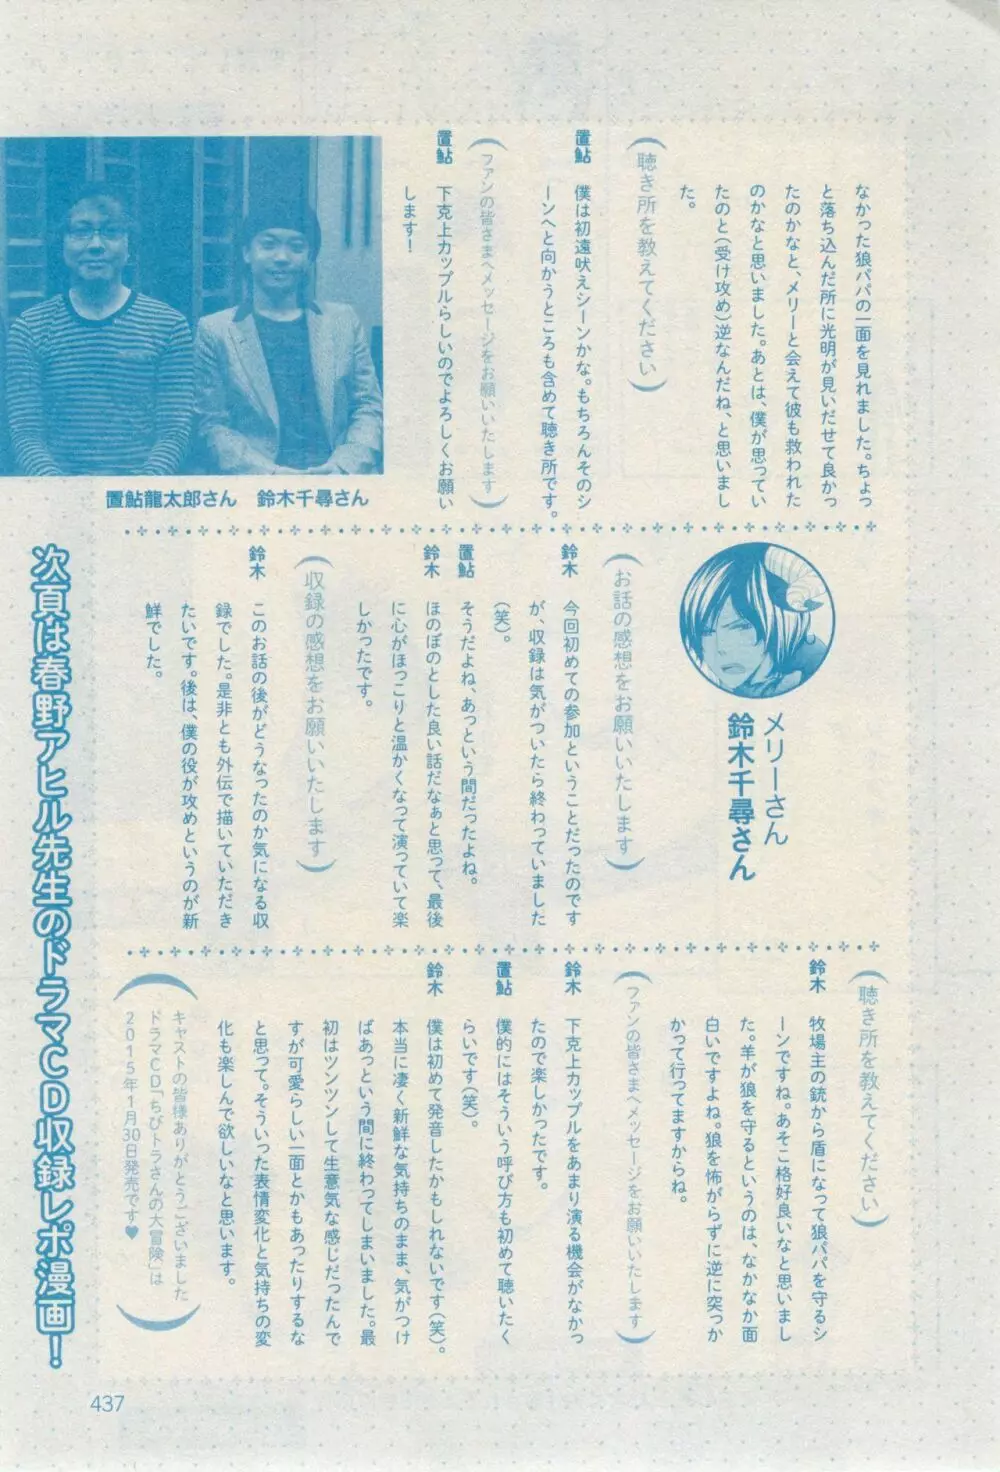 なかった狼パパの一面を見れました。ちょっ
と落ち込んだ所に光明が見いだせて良かっ
たのかなと、メリーと会えて彼も救われた
のかなと思いました。あとは、僕が思ってい
たのと(受け攻め)逆なんだね、と思いまし
た。
(聴き所を教えてください)
置鮎 僕は初遠吠えシーンかな。もちろんそのシ
ーンへと向かうところも含めて聴き所です。
(ファンの皆さまへメッセージをお願いいたします)
置鮎 下克上カップルらしいのでよろしくお願い
します!
置鮎龍太郎さん 鈴木千尋さん
メリーさん
鈴木千尋さん
(お話の感想をお願いいたします)
鈴木 今回初めての参加ということだったのです
が、収録は気がついたら終わっていました
(笑)。
置鮎 そうだよね、あっという間だったよね。
鈴木 ほのぼのとした良い話だなぁと思って、最後
に心がほっこりと温かくなって演っていて楽
しかったです。
(収録の感想をお願いいたします)
鈴木 このお話の後がどうなったのか気になる収
録でした。是非とも外伝で描いていただき
たいです。後は、僕の役が攻めというのが新
鮮でした。
(聴き所を教えてください)
鈴木 牧場主の銃から盾になって狼パパを守るシ
ーンですね。あそこ格好良いなと思いまし
た。羊が狼を守るというのは、なかなか面
白いですよね。狼を怖がらずに逆に突っか
かって行ってますからね。
(ファンの皆さまへメッセージをお願いいたします)
鈴木 下克上カップルをあまり演る機会がなかっ
たので楽しかったです。
置鮎 僕的にはそういう呼び方も初めて聴いたく
らいです(笑)。
鈴木 僕は初めて発音したかもしれないです(笑)。
本当に凄く新鮮な気持ちのまま、気がつけ
ばあっという間に終わってしまいました。最
初はツンツンして生意気な感じだったんで
すが可愛らしい一面とかもあったりするな
と思って。そういった表情変化と気持ちの変
化も楽しんで欲しいなと思います。
(キャストの皆様ありがとうございました
ドラマCD「ちびトラさんの大冒険」は
2015年1月30日発売です♥)
次頁は春野アヒル先生のドラマCD収録レポ漫画!
437